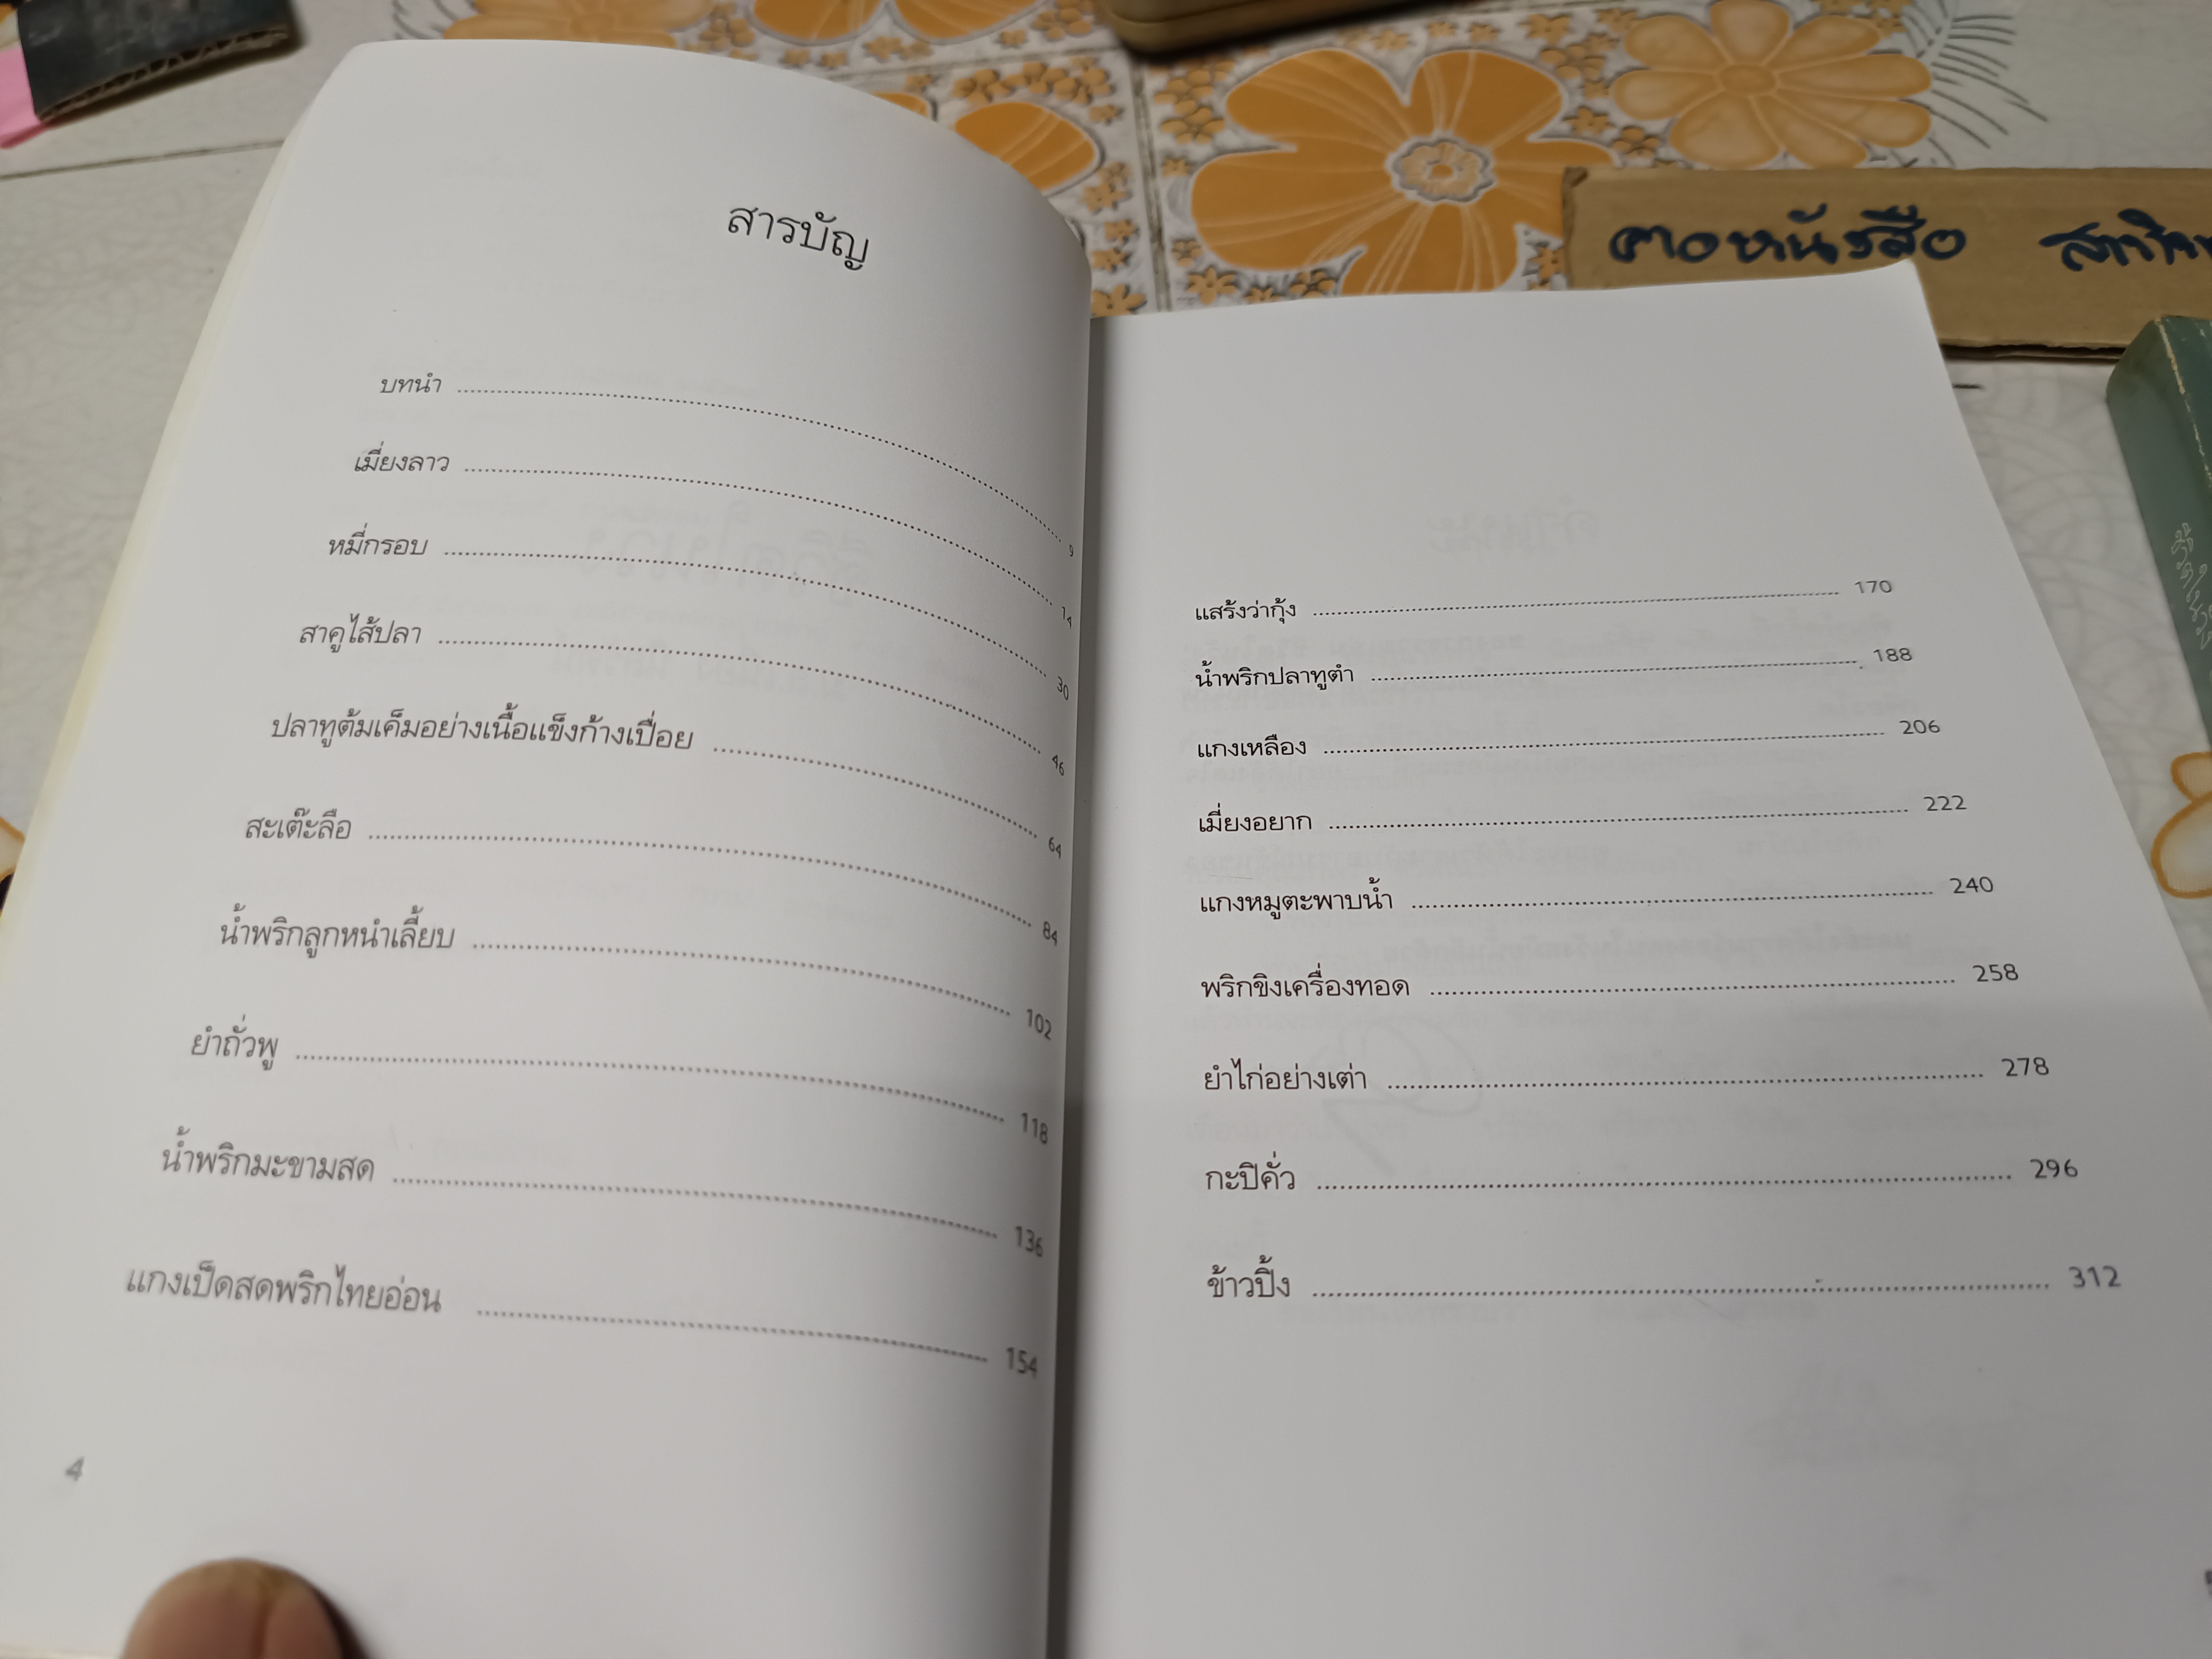 สารบัญ
บทนำ 9
เมี่ยงลาว 14
หมี่กรอบ 30
สาคูไส้ปลา 46
ปลาทูต้มเค็มอย่างเนื้อแข็งก้างเปื่อย 64
สะเต๊ะลือ 84
น้ำพริกลูกหนำเลี้ยบ 102
ยำถั่วพู 118
น้ำพริกมะขามสด 136
แกงเป็ดสดพริกไทยอ่อน 154
4
แสร้งว่ากุ้ง 170
น้ำพริกปลาทูตำ 188
แกงเหลือง 206
เมี่ยงอยาก 222
แกงหมูตะพาบน้ำ 240
พริกขิงเครื่องทอด 258
ยำไก่อย่างเต่า 278
กะปิคั่ว 296
ข้าวปิ้ง 312
คอหนังสือ